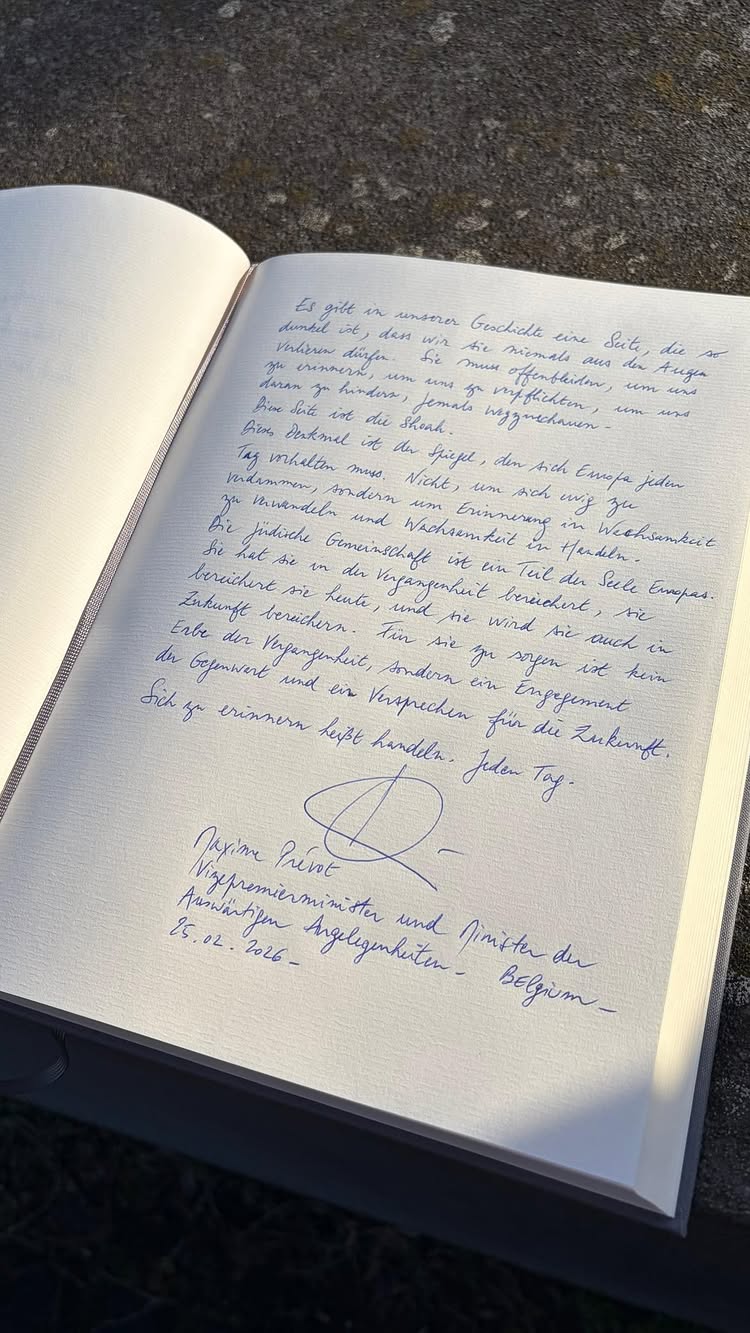 Es gibt in unserer Geschichte eine Seite, die so
dunkel ist, dass wir sie niemals aus den Augen
verlieren dürfen. Sie muss offenbleiben, um uns
zu erinnern, um uns zu verpflichten, um uns
daran zu hindern, jemals wegzuschauen -
Diese Seite ist die Shoah.
Dieses Denkmal ist der Spiegel, den sich Europa jeden
Tag vorhalten muss. Nicht, um sich ewig zu
verdammen, sondern um Erinnerung in Wachsamkeit
zu verwandeln und Wachsamkeit in Handeln.
Die jüdische Gemeinschaft ist ein Teil der Seele Europas.
Sie hat sie in der Vergangenheit bereichert, sie
bereichert sie heute, und sie wird sie auch in
Zukunft bereichern. Für sie zu sorgen ist kein
Erbe der Vergangenheit, sondern ein Engagement
der Gegenwart und ein Versprechen für die Zukunft.
Sich zu erinnern heißt handeln. Jeden Tag.
Maxime Prévot
Vizepremierminister und Minister der
Auswärtigen Angelegenheiten - BElgium -
25.02.2026 -